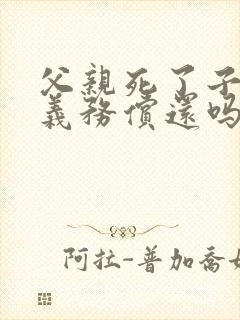 父親死了子
義務償還嗎
阿拉-普加喬